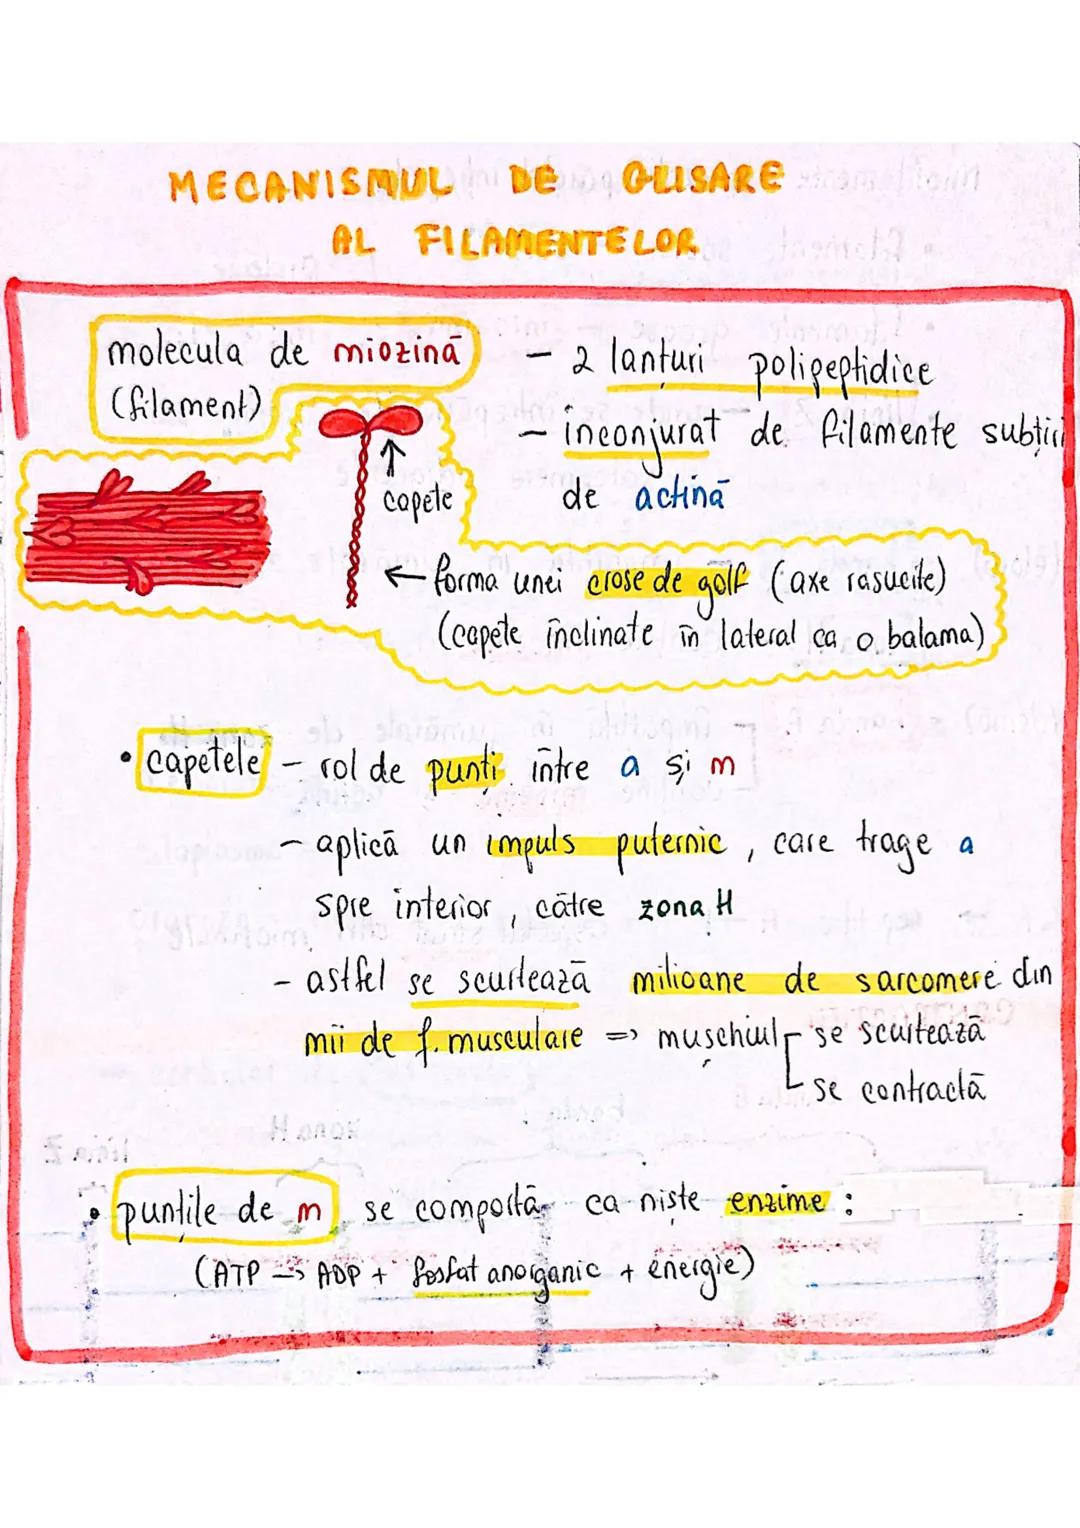 MECANISMUL DE GLISARE
AL FILAMENTELOR
molecula de miozină
(filament)
- 2 lanțuri polipeptidice
- inconjurat de filamente subțiri
de actină
capete
← forma unei crose de golf (axe rasucite)
(capete înclinate în lateral ca o balama)
• capetele - rol de punți între a și m
- aplică un impuls puternic, care trage a
spre interior, către zona H
- astfel se scurtează milioane de sarcomere din
mii de f. musculare => mușchiul se scurtează
se contractă
• punțile de m se comportă ca niște enzime:
(ATP -> ADP + fosfat anorganic + energie)